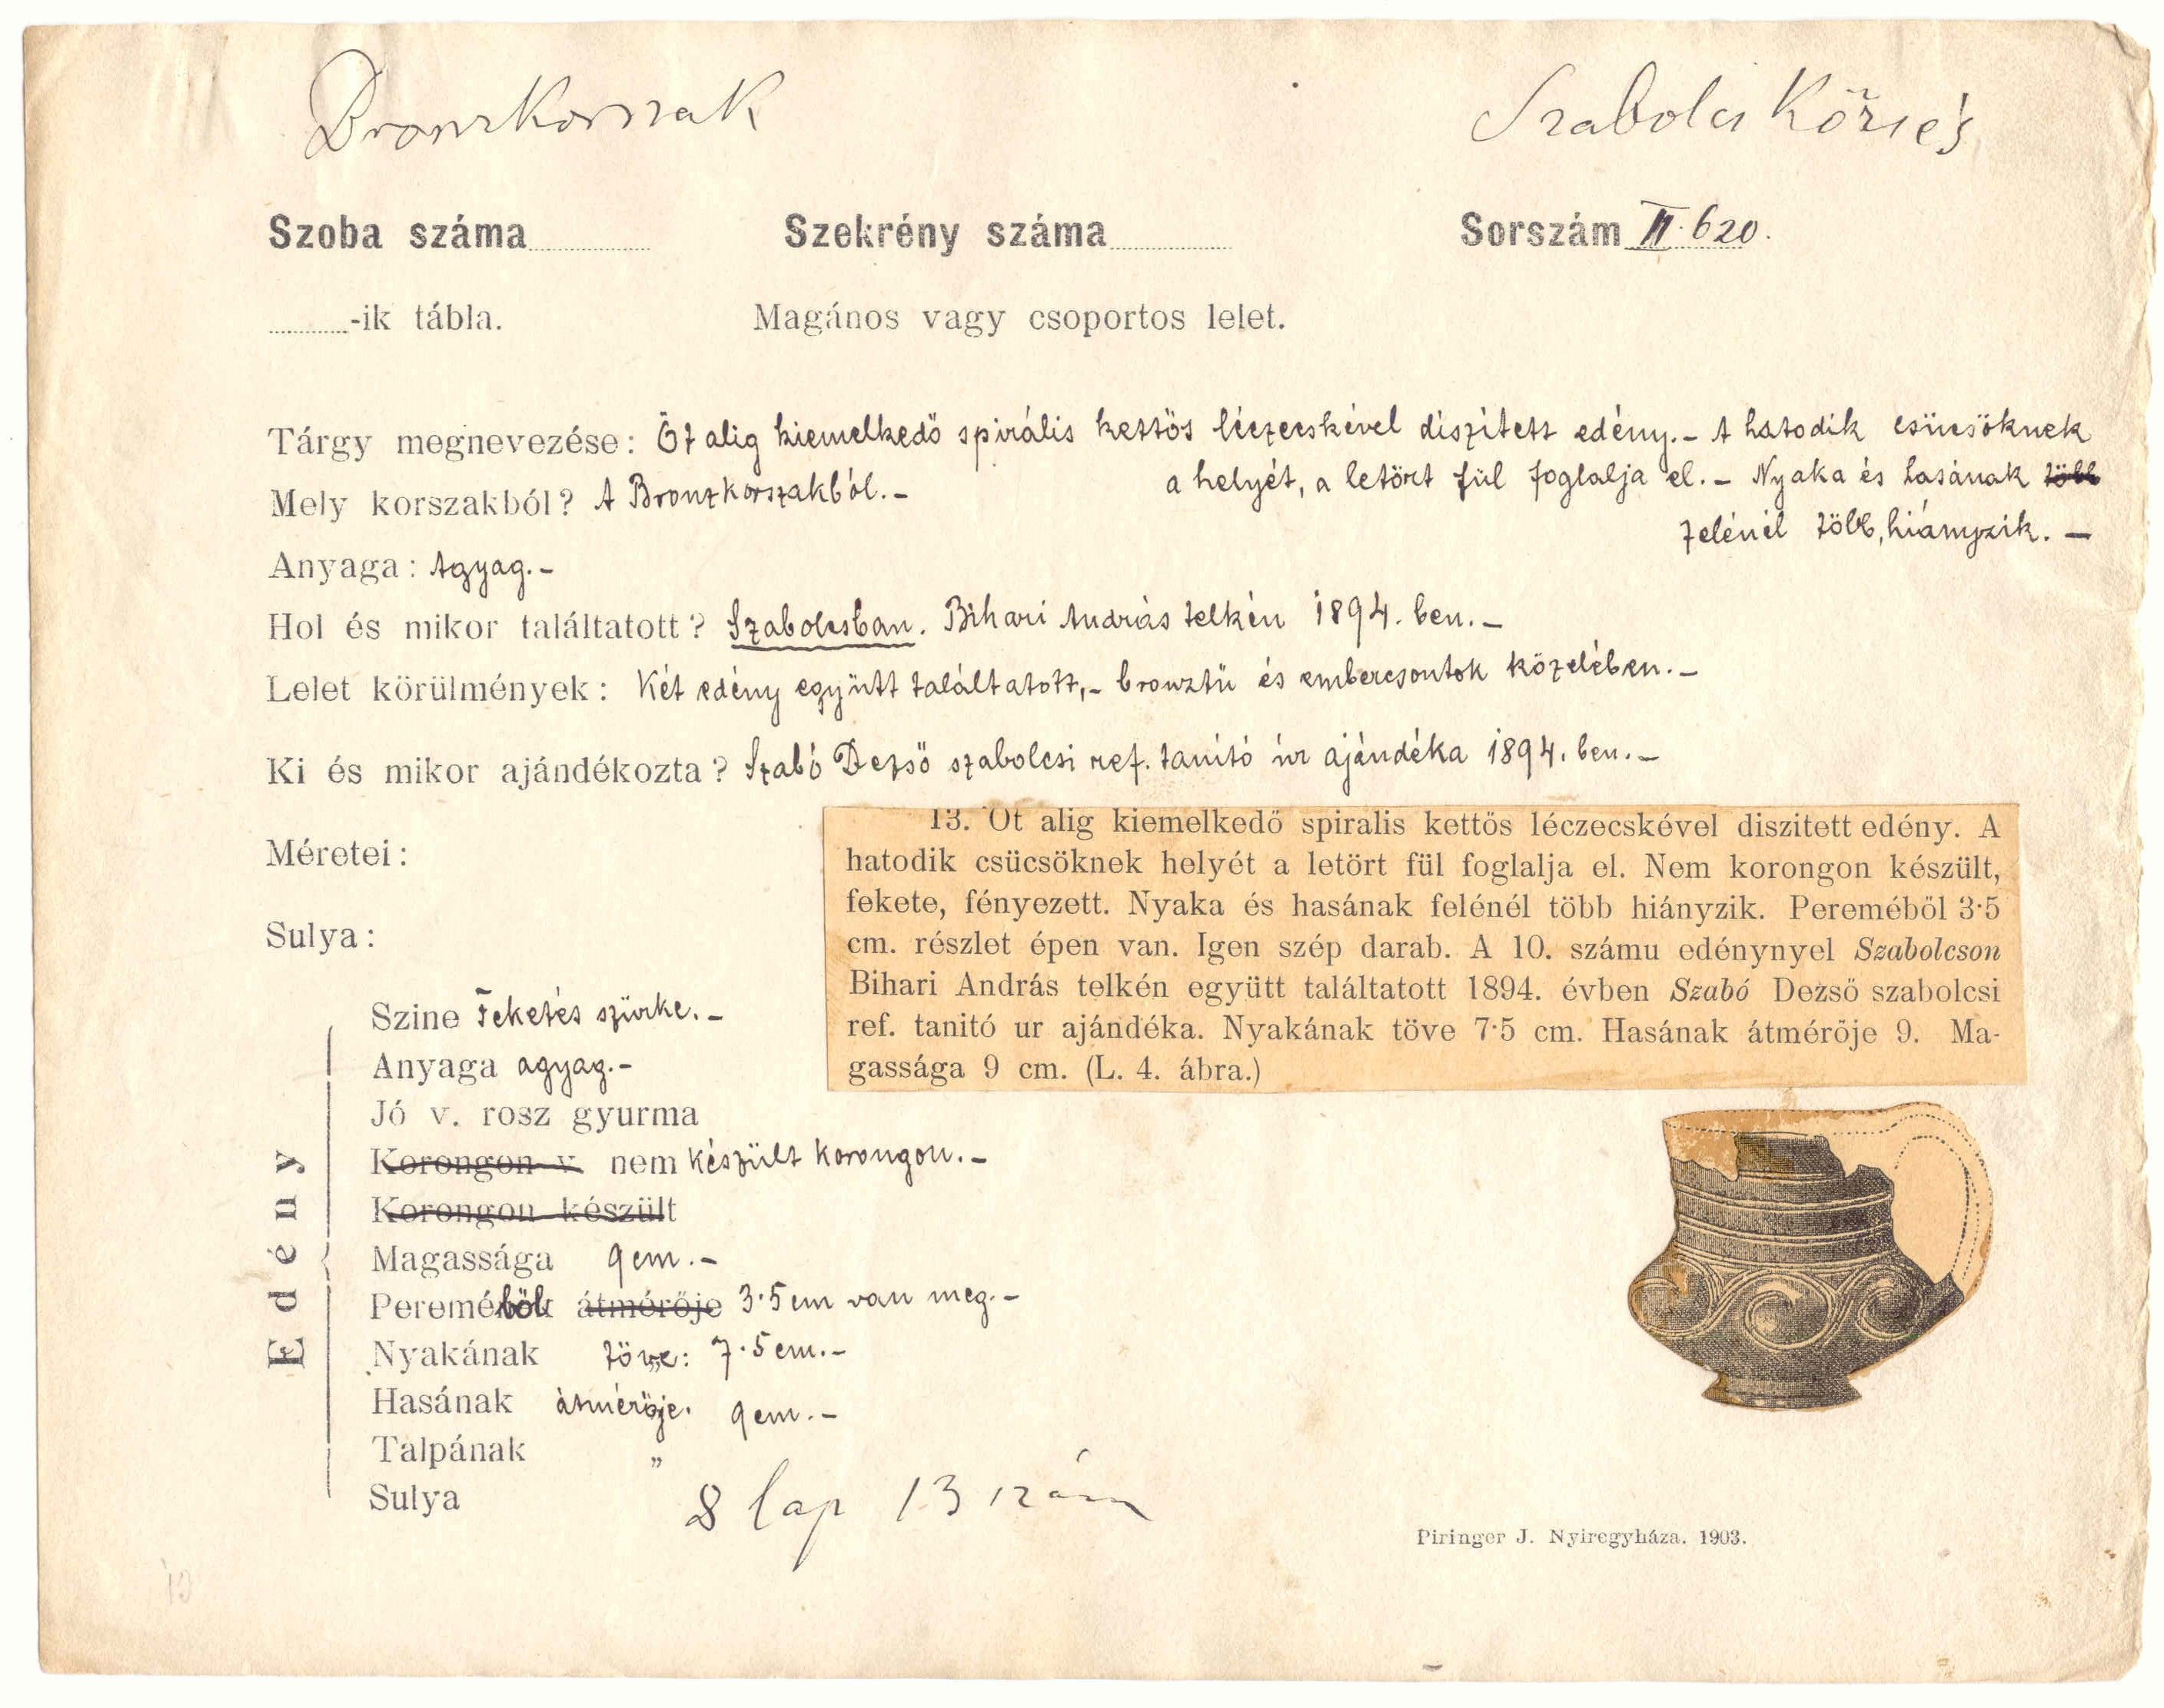 Bronzkorszak
Szabolcs Község
Szoba száma
Szekrény száma
Sorszám II. 620.
-ik tábla.
Magános vagy csoportos lelet.
Tárgy megnevezése: Öt alig kiemelkedő spirális kettős léczecskével díszített edény.– A hatodik csücsöknek
a helyét, a letört fül foglalja el.– Nyaka és hasának több
felénél több, hiányzik.–
Mely korszakból? A Bronzkorszakból.–
Anyaga: Agyag.–
Hol és mikor találtatott? Szabolcsban. Bihari András telkén 1894. ben.–
Lelet körülmények: Két edény együtt találtatott,– bronztű és embercsontok közelében.–
Ki és mikor ajándékozta? Szabó Dezső szabolcsi ref. tanító úr ajándéka 1894. ben.–
Méretei:
Sulya:
13. Öt alig kiemelkedő spiralis kettős léczecskével diszitett edény. A
hatodik csücsöknek helyét a letört fül foglalja el. Nem korongon készült,
fekete, fényezett. Nyaka és hasának felénél több hiányzik. Pereméből 3·5
cm. részlet épen van. Igen szép darab. A 10. számu edénynyel Szabolcson
Bihari András telkén együtt találtatott 1894. évben Szabó Dezső szabolcsi
ref. tanitó ur ajándéka. Nyakának töve 7·5 cm. Hasának átmérője 9. Ma-
gassága 9 cm. (L. 4. ábra.)
Edény
Szine Feketés szürke.–
Anyaga agyag.–
Jó v. rosz gyurma
Korongon v. nem készült korongon.–
Korongon készült
Magassága 9 cm.–
Pereméből átmérője 3·5 cm van meg.–
Nyakának töve: 7·5 cm.–
Hasának átmérője. 9 cm.–
Talpának „
Sulya
8 lap 13 szám
Piringer J. Nyiregyháza. 1903.